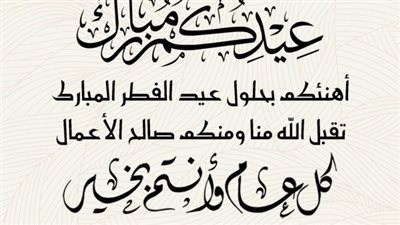 عِيدُكُم مُبَارَك
أهنئكم بحلول عيد الفطر المبارك
تقبل الله منا ومنكم صالح الأعمال
كل عام وأنتم بخير